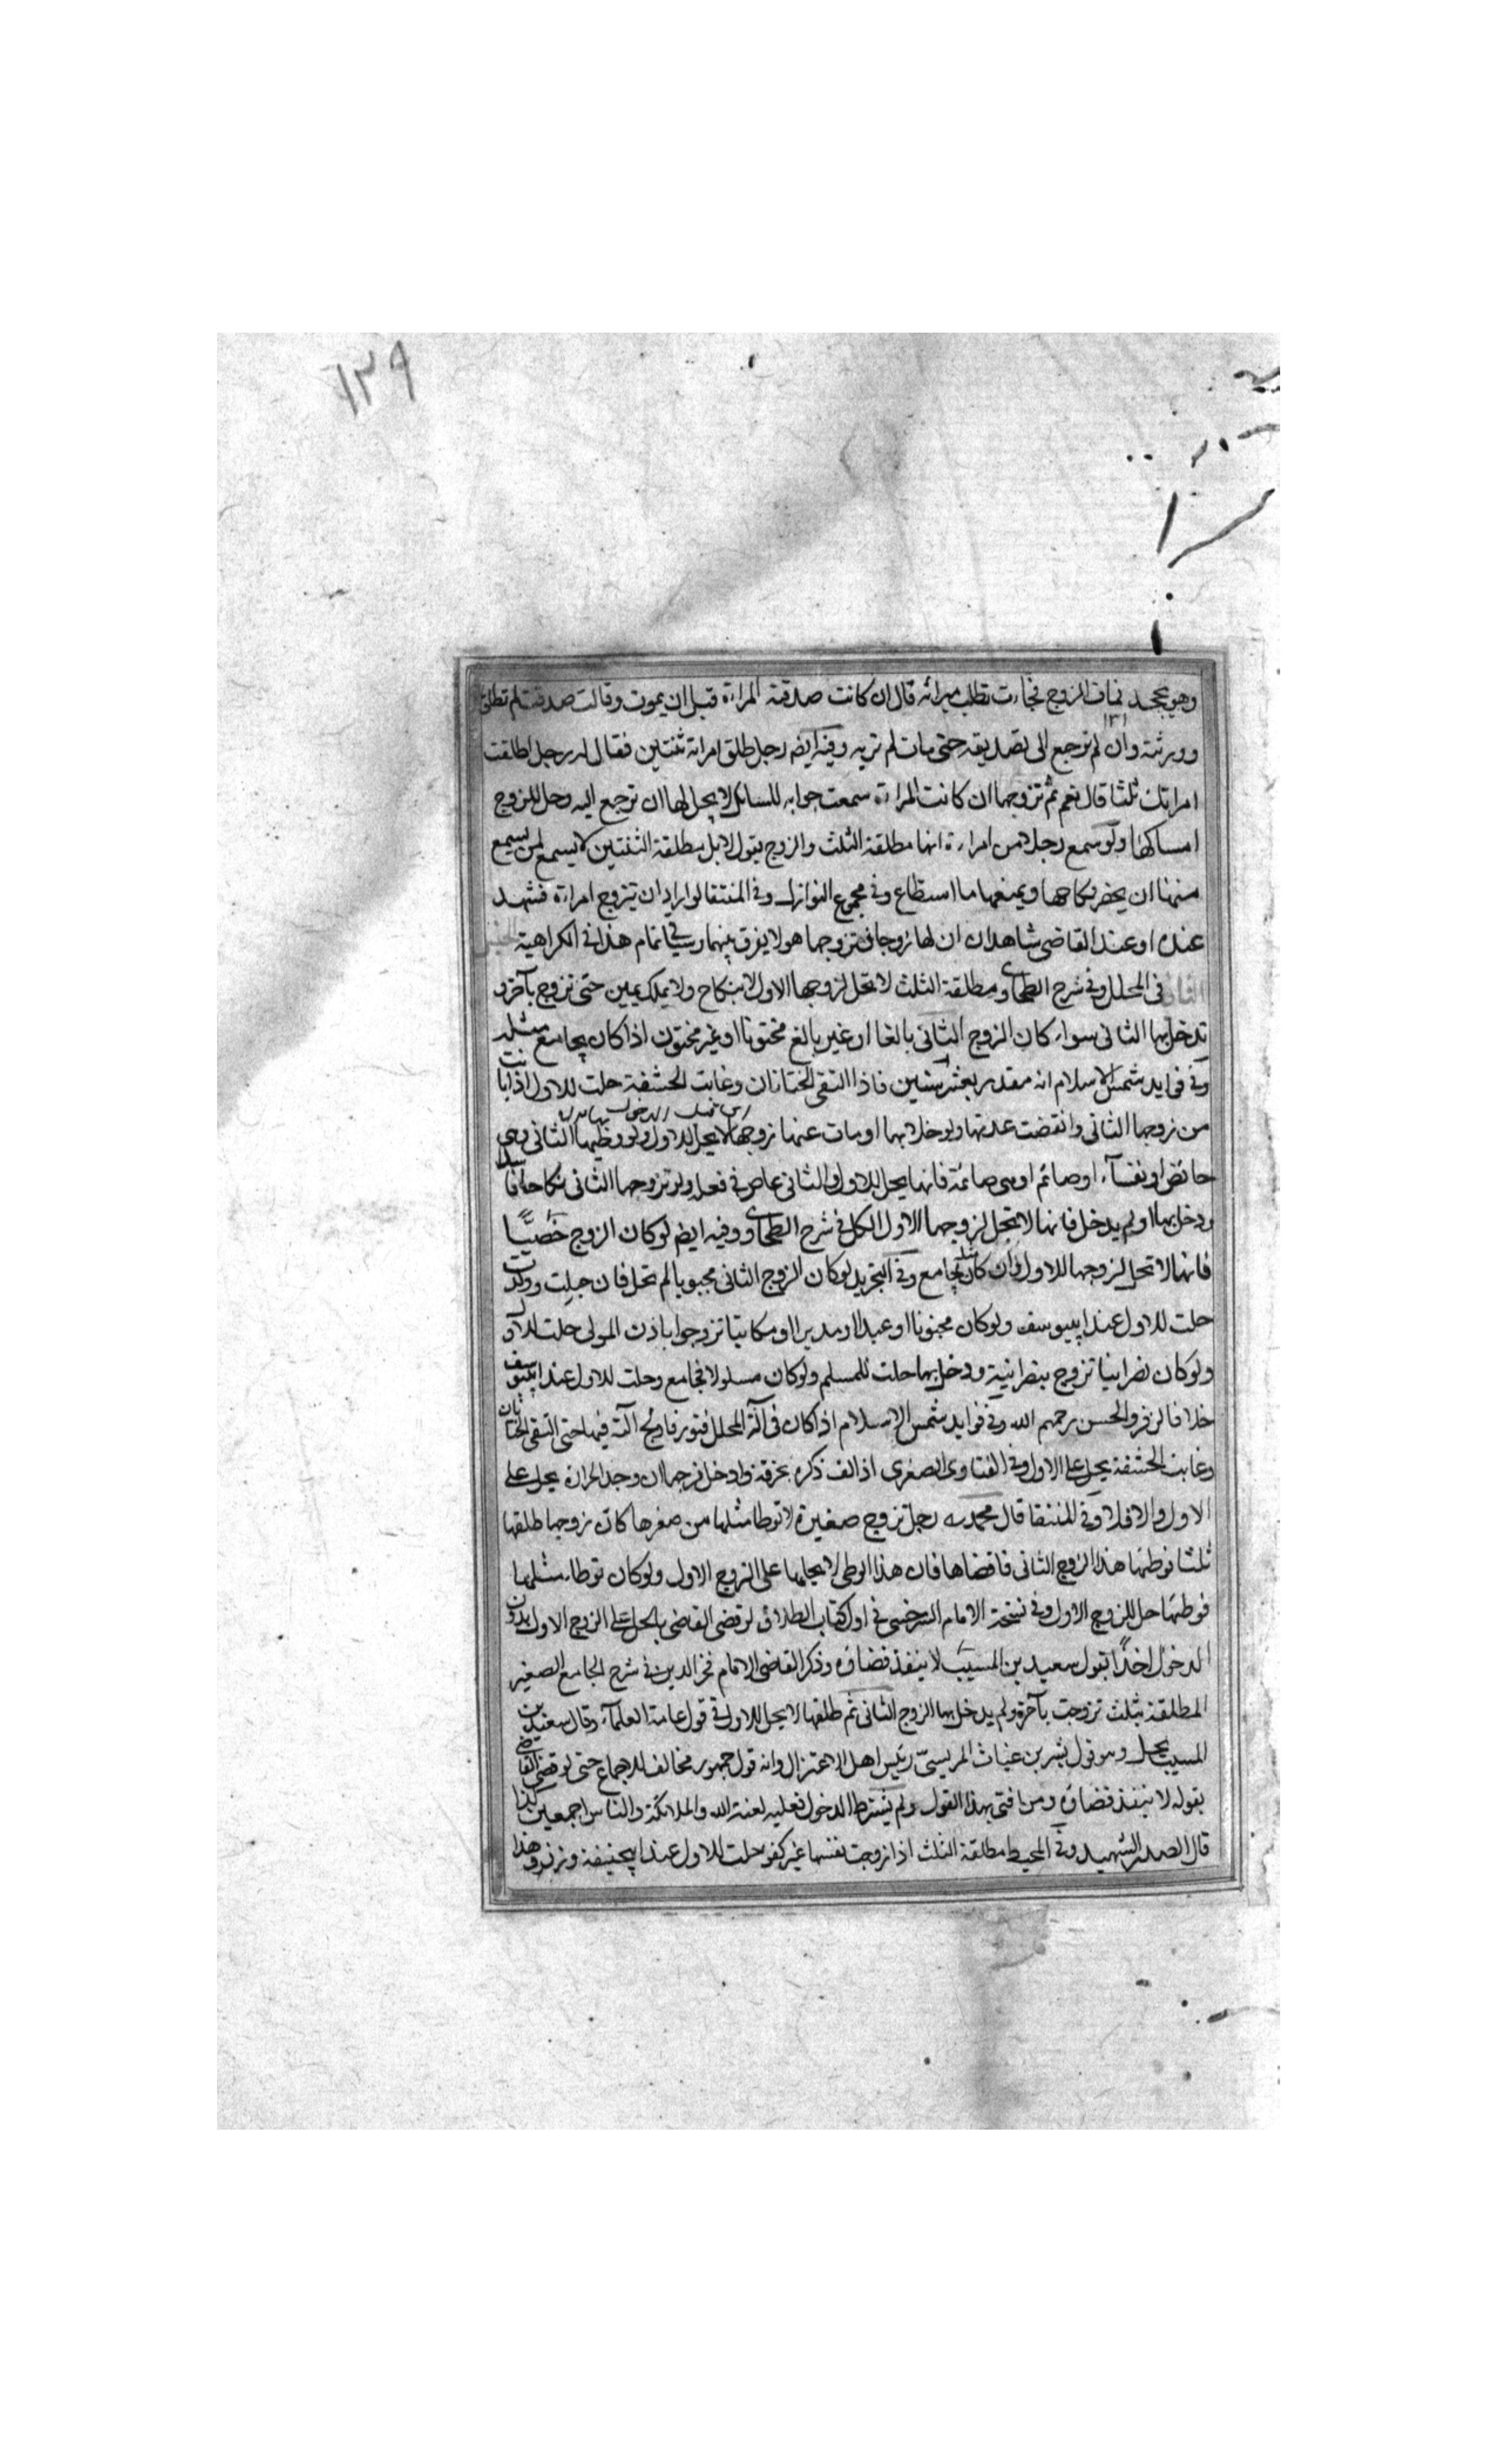 ١٣٩
وهو يجحد فمات الزوج فجاءت تطلب ميراثه قال ان كانت صدقته المراءة قبل ان يموت وقالت صدقت لم تطلق
وورثته وان لم ترجع الى تصديقه حتى مات لم ترثه وفيه ايضه رجل طلق امراته ثنتين فقال له رجل اطلقت
امراتك ثلثا قال نعم ثم تزوجها ان كانت المراءة سمعت جوابه للسائل لا يحل لها ان ترجع اليه وحل للزوج
امساكها ولو سمع رجل من امراءة انها مطلقة الثلث والزوج يقول لا بل مطلقة الثنتين لا يسمع لمن يسمع
منها ان يحضر نكاحها ويمنعها ما استطاع وفى مجموع النوازل وفى المنتقا لو اراد ان يتزوج امراءة فشهد
عنده او عند القاضى شاهدان ان لها زوجا فتزوجها هو لا يفرق بينهما وسياتى تمام هذا فى الكراهية
فى المحلل وفى شرح الطحاوى ومطلقة الثلث لا تحل لزوجها الاول لا بنكاح ولا بملك يمين حتى تزوج بآخر و
يدخل بها الثانى سواء كان الزوج الثانى بالغا او غير بالغ مختونا او غير مختون اذا كان يجامع مثله
وفى فوايد شمس الاسلام انه مقدر بعشر سنين فاذا التقى الختانان وغابت الحشفة حلت للاول اذا بانت
من زوجها الثانى وانقضت عدتها ولو خلا بها او مات عنها زوجها لا يحل للاول ولو وطيها الثانى وهى
حائض او نفسآء او صائم او هى صائمة فانها يحل للاول والثانى عاص فى فعله ولو تزوجها الثانى نكاحا فاسدا
ودخل بها او لم يدخل فانها لا تحل لزوجها الاول الكل فى شرح الطحاوى وفيه ايضه لو كان الزوج خَصِيًّا
فانها لا تحل لزوجها للاول وان كان مثله يجامع وفى التجريد لو كان الزوج الثانى مجبوبا لم تحل فان حبلت وولدت
حلت للاول عند ابيوسف ولو كان مجنونا او عبدا او مدبرا او مكاتبا تزوجوا باذن المولى حلت للاول
ولو كان نصرانيا تزوج بنصرانية ودخل بها حلت للمسلم ولو كان مسلولا فجامع وحلت للاول عند ابيوسف
خلافا لزفر والحسن رحمهم الله وفى فوايد شمس الاسلام اذا كان فى آلة المحلل فتور فاولج آلته فيها حتى التقى الختانان
وغابت الحشفة يحل على الاول وفى الفتاوى الصغرى اذا لف ذكره بخرقة وادخل فرجها ان وجد الحرارة يحل على
الاول والا فلا وفى المنتقا قال محمد رجل تزوج صغيرة لا توطا مثلها من صغرها كان زوجها طلقها
ثلثا فوطئها هذا الزوج الثانى فافضاها فان هذا الوطى لا يحلها على الزوج الاول ولو كان توطاء مثلها
فوطئها حل للزوج الاول وفى نسخة الامام السرخسى فى اول كتاب الطلاق لو قضى القاضى بالحل على الزوج الاول بدون
الدخول اخذًا بقول سعيد بن المسيب لا ينفذ قضاؤه وذكر القاضى الامام فخر الدين فى شرح الجامع الصغير
المطلقة بثلث تزوجت بآخر ولم يدخل بها الزوج الثانى ثم طلقها لا يحل للاول فى قول عامة العلمآء وقال سعيد بن
المسيب يحل وهو قول بشر بن غياث المريسىّ رئيس اهل الاعتزال وانه قول مهجور مخالف للاجماع حتى لو قضى القاضى
بقوله لا ينفذ قضاؤه ومن افتى بهذا القول ولم يشترط الدخول فعليه لعنة الله والملائكة والناس اجمعين كذا
قال الصدر الشهيد وفى المحيط مطلقة الثلث اذا زوجت نفسها غير كفو حلت للاول عند ابيحنيفة وزفر وهذا